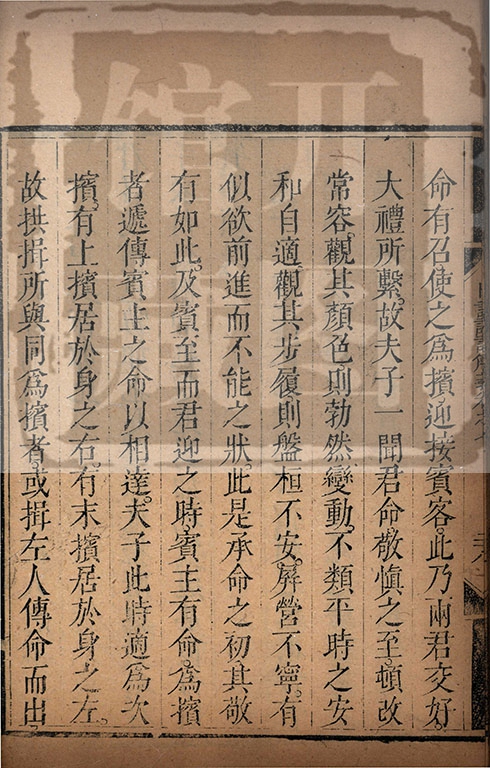 命有召使之為擯迎接賓客此乃兩君交好
大禮所繫故夫子一聞君命敬慎之至頓改
常容觀其顏色則勃然變動不類平時之安
和自適觀其步履則盤桓不安屏營不寧有
似欲前進而不能之狀此是承命之初其敬
有如此及賓至而君迎之時賓主有命為擯
者遞傳賓主之命以相達夫子此時適為次
擯有上擯居於身之右有末擯居於身之左
故拱揖所與同為擯者或揖左人傳命而出